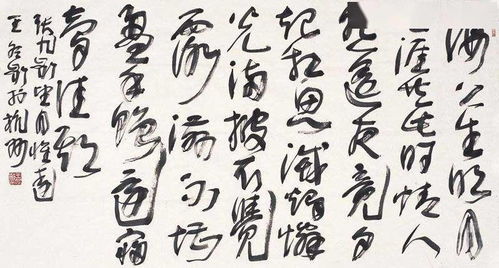 海上生明月
天涯共此时情人
怨遥夜竟夕
起相思灭烛怜
光满披衣觉
露滋不堪
盈手赠还寝
梦佳期
张九龄望月怀远
王冬龄于杭州